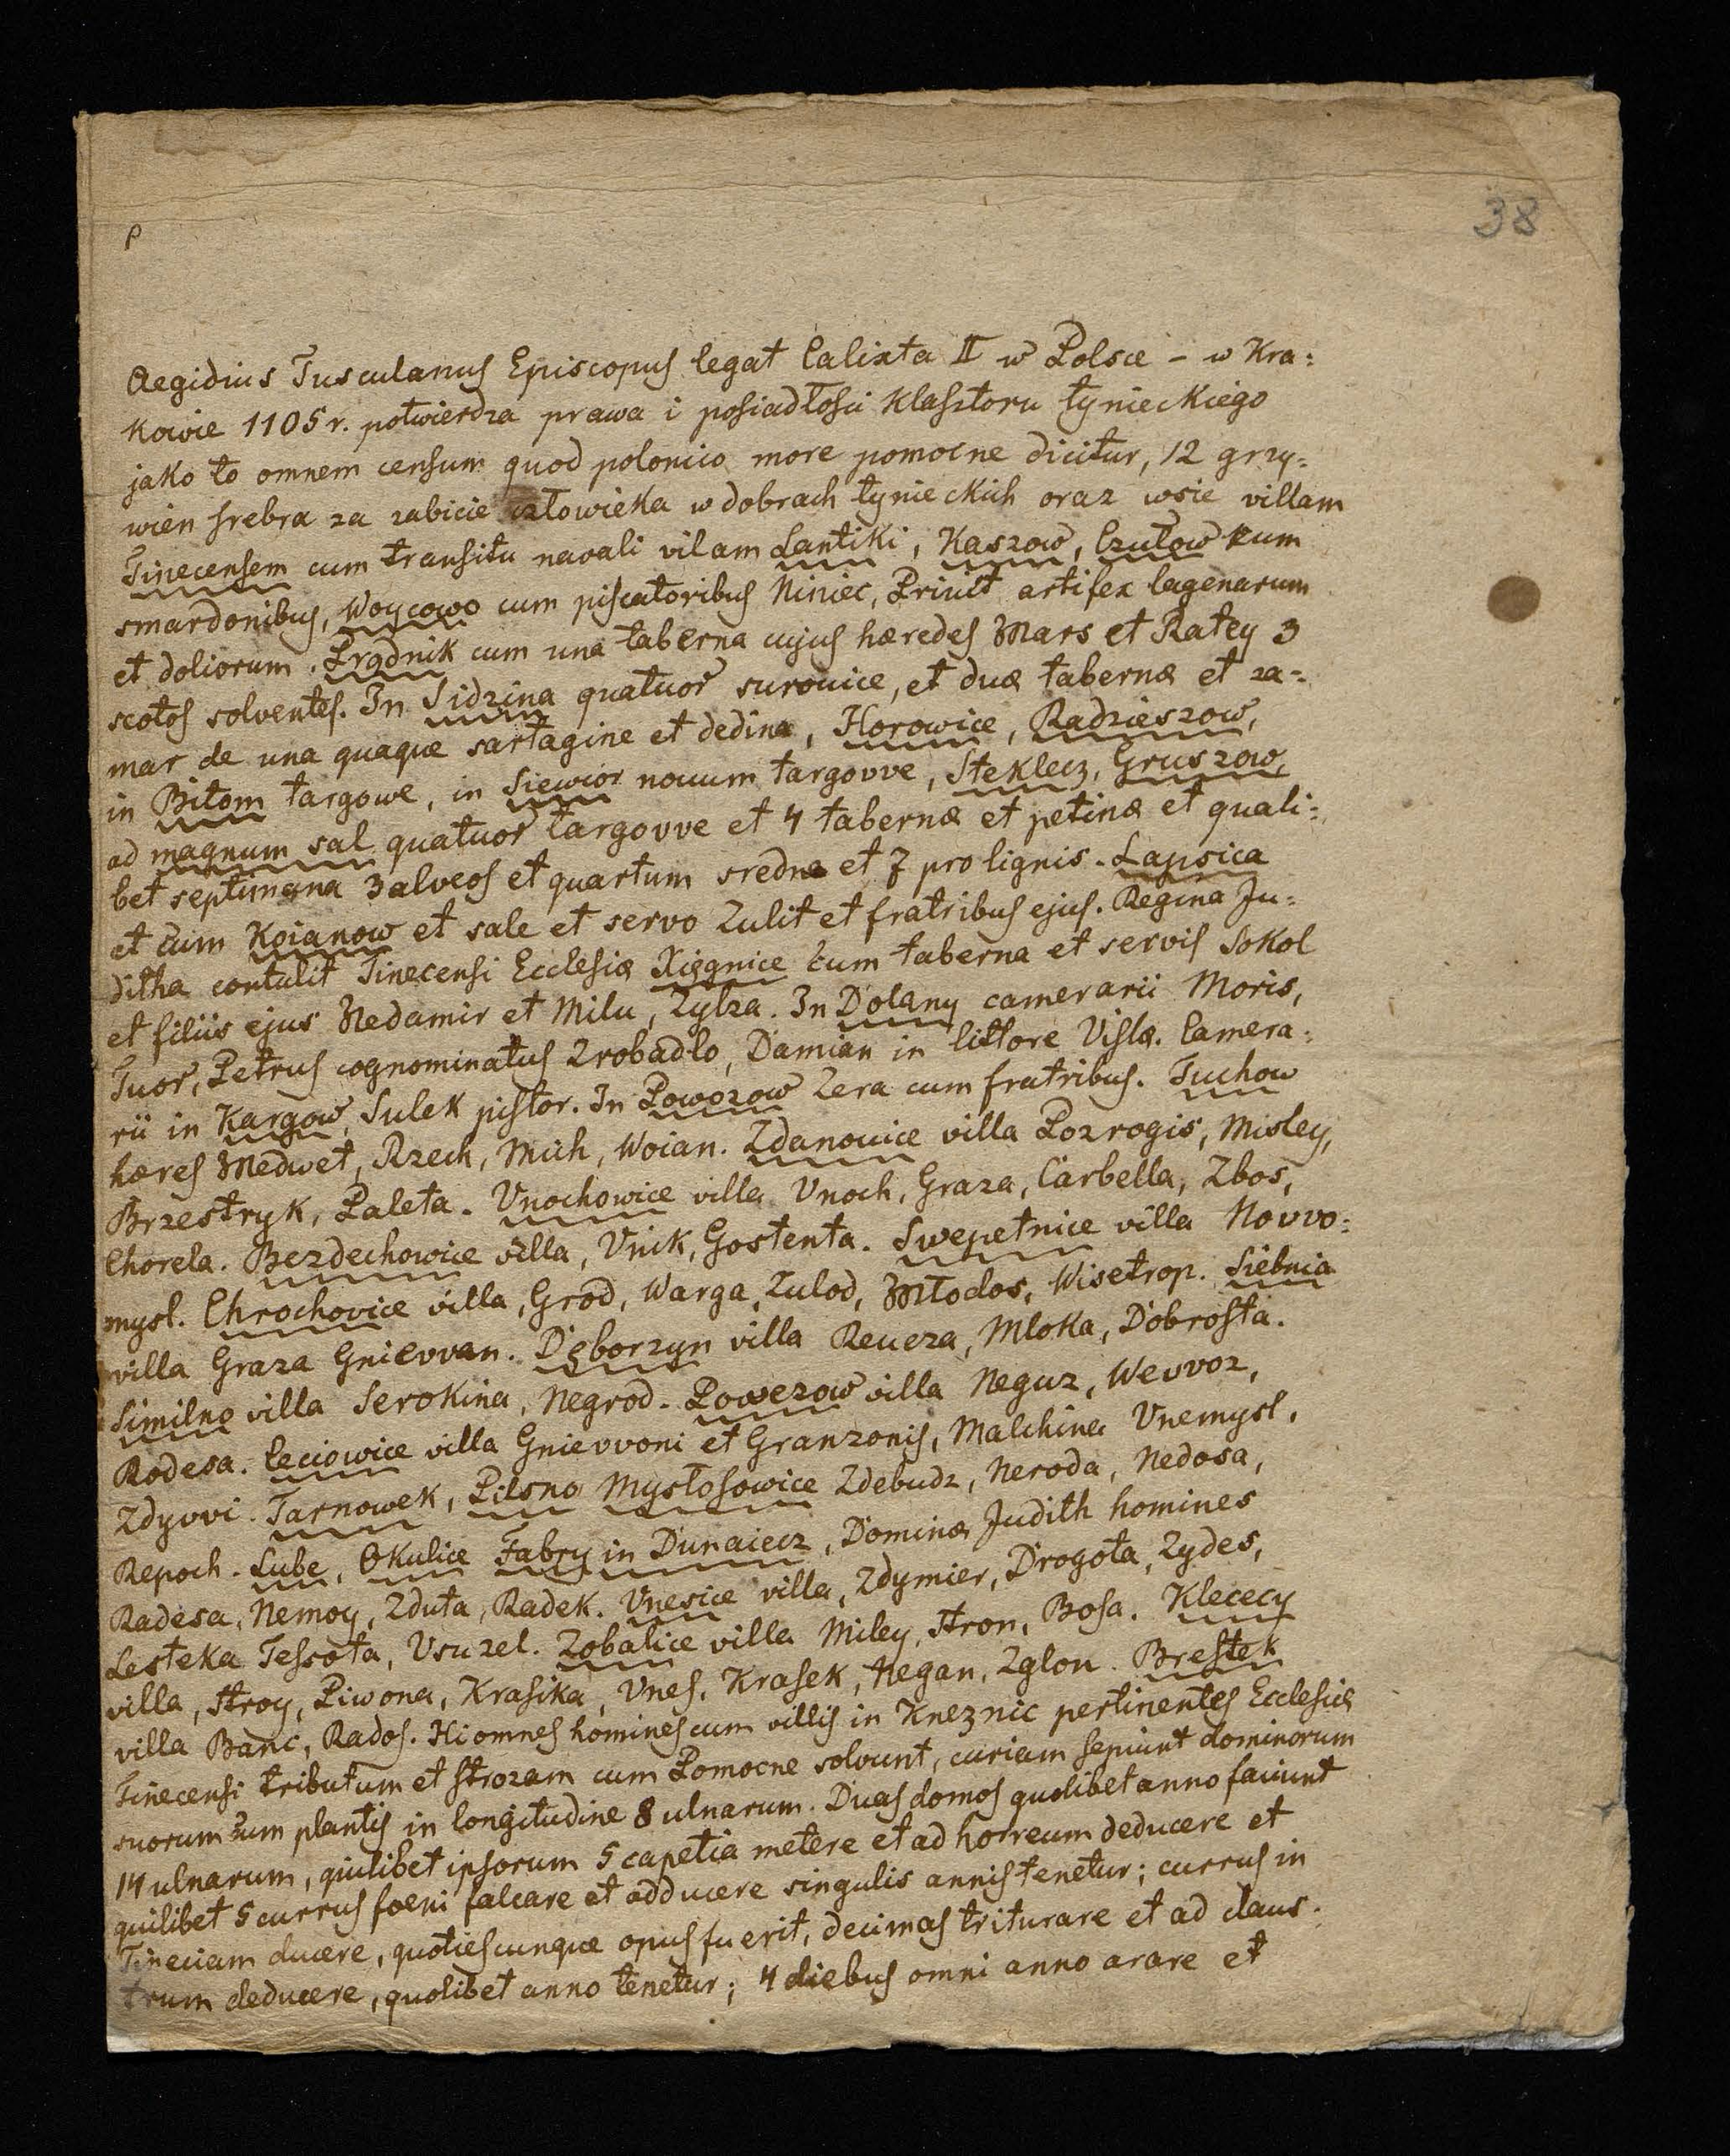 38
P
Aegidius Tusculanus Episcopus legat Calixta II w Polsce – w Kra=
kowie 1105 r. potwierdza prawa i posiadłości klasztoru tynieckiego
jako to omnem censum quod polonico more pomocne dicitur, 12 grzy=
wien srebra za zabicie człowieka w dobrach tynieckich oraz wsie villam
Tinecensem cum transitu navali vilam Lantiki, Kaszow, Czułow cum
smardonibus, Woycowo cum piscatoribus Niniec, Priuit artifex lagenarum
et doliorum. Prądnik cum una taberna cujus hæredes Mars et Ratey 3
scotos solventes. In Sidzina quatuor surouice, et duæ tabernæ et za=
mar de una quaque sartagine et dedina, Horowice, Radzieszow,
in Bitom targowe, in Siewior nouum targovve, Steklecz, Gruszow,
ad magnum sal quatuor targovve et 4 tabernæ et petinæ et quali=
bet septimana 3 alveos et quartum sredne et 7 pro lignis. Lapsica
et cum Koianow et sale et servo Zulit et fratribus ejus. Regina Ju=
ditha contulit Tinecensi Ecclesiæ Xięgnice cum taberna et servis Sokol
et filiis ejus Nedamir et Milu, Zylza. In Dolany camerarii Moris,
Tuor, Petrus cognominatus Zrobadlo, Damian in littore Vislæ. Camera=
rii in Kargow, Sulek pistor. In Powozow Zera cum fratribus. Tuchow
hæres Medwet, Rzech, Mich, Woian. Zdanouice villa Pozrogis, Misley,
Brzestryk, Paleta. Vnochowice villa Vnoch, Graza, Carbella, Zbos,
Chorela. Bezdechowice villa, Vnik, Gostenta. Swepetnice villa Novvo=
mysl. Chrochovice villa, Grod, Warga, Zulod, Młodos, Wisetrop. Siebnia
villa Graza Gnievvan. Dęborzyn villa Reueza, Mloka, Dobrosta.
Similno villa Serokina, Negrod. Powezow villa Neguz, Wevvoz,
Rodesa. Ceciowice villa Gnievvoni et Granzonis, Malchina Vnemysl,
Zdyvvi. Tarnowek, Pilsno Mysłosowice Zdebudz, Neroda, Nedosa,
Repoch. Lube, Okulice Fabry in Dunaiecz, Dominæ Judith homines
Radesa, Nemoy, Zduta, Radek. Vnesice villa, Zdymier, Drogota, Zydes,
Lesteka Tessota, Vsuzel. Zobalice villa Miley, Stron, Bosa. Klececy
villa, Stroy, Piwona, Krasika, Vnes, Krasek, Negan, Zglou. Brestek
villa Banc, Rados. Hi omnes homines cum villis in Kneznic pertinentes Ecclesiæ
Tinecensi tributum et strozam cum Pomocne solvunt, curiam sepiunt dominorum
suorum cum plantis in longitudine 8 ulnarum. Duas domos quolibet anno faciunt
14 ulnarum, quilibet ipsorum 5 capetia metere et ad horreum deducere et
quilibet 5 currus foeni falcare et adducere singulis annis tenetur; currus in
Tineciam ducere, quotiescunque opus fuerit, decimas triturare et ad claus=
trum deducere, quolibet anno tenetur; 4 diebus omni anno arare et